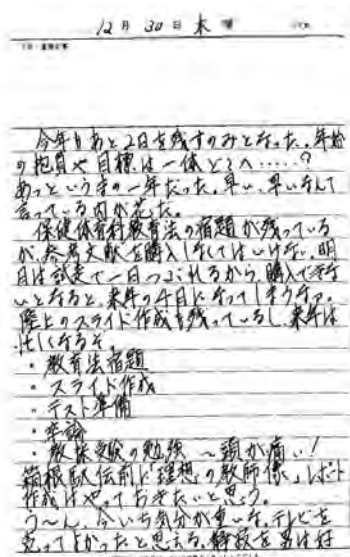 12月30日木曜
今年もあと2日を残すのみとなった。年始
の抱負や目標は一体どこへ……?
あっという間の一年だった。早い、早いなんて
言っている内が花だ。
保健体育科教育法の宿題が残っている
が、参考文献を購入しなくてはいけない。明
日は試走で一日つぶれるから、購入できな
いとなると、来年の4日になってしまうなァ。
陸上のスライド作成も残っているし、来年は
忙しくなるぞ。
・教育法宿題
・スライド作成
・テスト準備
・卒論
・教採受験の勉強 〜頭が痛い!
箱根駅伝前に「理想の教師像」レポート
作成はやっておきたいと思う。
う〜ん、今いち気分が重いな。テレビを
売ってよかったと思える。解放を、男は好